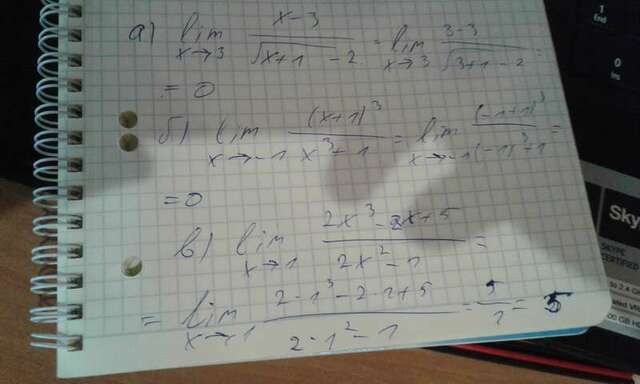 а) lim x→3 (x-3)/(√x+1 -2) = lim x→3 (3-3)/(√3+1 -2) =
= 0
б) lim x→-1 (x+1)³/(x³+1) = lim x→-1 (-1+1)³/((-1)³+1) =
= 0
в) lim x→1 (2x³-2x+5)/(2x²-1) =
= lim x→1 (2·1³-2·1+5)/(2·1²-1) = 5/1 = 5
1
End
0
Ins
Sky
SKYPE
CERTIFIED